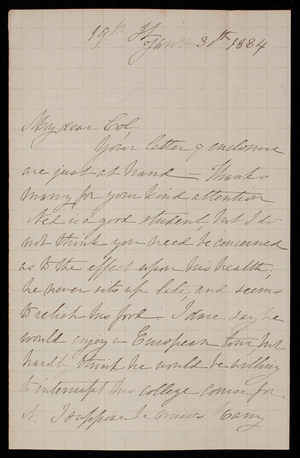 19th St
Jany 30th 1884
My dear Col
Your letter & enclosure
are just at hand – Thanks
many for your kind attention
Ned is a good student but I do
not think you need be concerned
as to the effect upon his health,
he never sits up late and seems
to relish his food – I dare say he
would enjoy a European tour but
hardly think he would be willing
to interrupt his college course for
it. I suppose he misses Harry